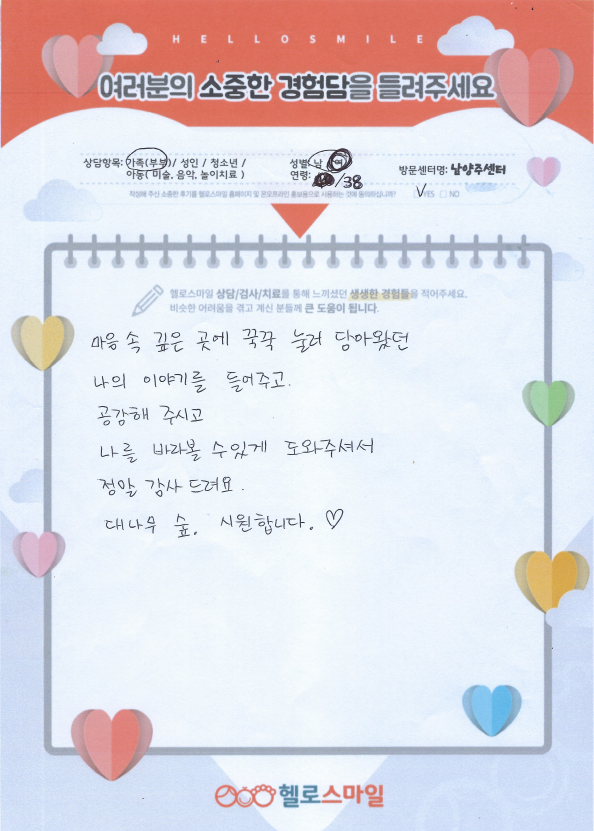 HELLOSMILE
여러분의 소중한 경험담을 들려주세요
상담항목: 가족(부부) / 성인 / 청소년 / 아동( 미술, 음악, 놀이치료 )
성별: 남 여
연령: /38
방문센터명: 남양주센터
작성해 주신 소중한 후기를 헬로스마일 홈페이지 및 온오프라인 홍보용으로 사용하는 것에 동의하십니까? V YES □ NO
헬로스마일 상담/검사/치료를 통해 느끼셨던 생생한 경험들을 적어주세요.
비슷한 어려움을 겪고 계신 분들께 큰 도움이 됩니다.
마음 속 깊은 곳에 꾹꾹 눌러 담아왔던
나의 이야기를 들어주고.
공감해 주시고
나를 바라볼 수있게 도와주셔서
정말 감사드려요.
대나무 숲. 시원합니다. ♡
헬로스마일